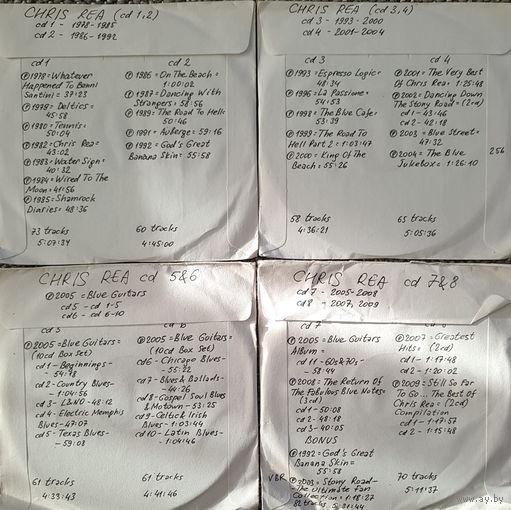 CHRIS REA (cd 1,2)
cd 1 - 1978-1985
cd 2 - 1986-1992
cd 1
℗1978=Whatever
Happened To Benni
Santini = 37:23
℗1979= Deltics=
45:58
℗1980=Tennis=
50:04
℗1982=Chris Rea=
43:02
℗1983=Water Sign=
40:32
℗1984=Wired To The
Moon=41:56
℗1985=Shamrock
Diaries= 48:36
73 tracks
5:07:34
cd 2
℗1986=On The Beach=
1:00:02
℗1987=Dancing With
Strangers= 58:56
℗1989=The Road To Hell=
50:46
℗1991=Auberge= 59:16
℗1992=God's Great
Banana Skin= 55:58
60 tracks
4:45:00
CHRIS REA (cd 3,4)
cd 3 - 1993-2000
cd 4 - 2001-2004
cd 3
℗1993=Espresso Logic=
48:34
℗1996=La Passione=
54:53
℗1998=The Blue Cafe=
53:39
℗1999=The Road To
Hell Part 2= 1:03:47
℗2000=King Of The
Beach= 55:26
58 tracks
4:36:21
cd 4
℗2001=The Very Best
Of Chris Rea= 1:25:48
℗2002=Dancing Down
The Stony Road=(2cd)
cd 1 - 43:46
cd 2 - 42:18
℗2003=Blue Street=
47:32
℗2004=The Blue
Jukebox= 1:26:10
256
65 tracks
5:05:36
CHRIS REA cd 5&6
℗2005=Blue Guitars
cd 5 - cd 1-5
cd 6 - cd 6-10
cd 5
℗2005=Blue Guitars=
(10cd Box Set)
cd 1 - Beginnings-
54:78
cd 2 - Country Blues-
1:04:56
cd 3 - L&NO - 48:12
cd 4 - Electric Memphis
Blues - 47:07
cd 5 - Texas Blues-
59:08
61 tracks
4:33:43
cd 6
℗2005=Blue Guitars=
(10cd Box Set)
cd 6 - Chicago Blues-
55:22
cd 7 - Blues & Ballads-
44:26
cd 8 - Gospel Soul Blues
& Motown - 53:25
cd 9 - Celtic & Irish
Blues - 1:03:44
cd 10 - Latin Blues-
1:04:46
61 tracks
4:41:46
CHRIS REA cd 7&8
cd 7 - 2005-2008
cd 8 - 2007, 2009
cd 7
℗2005=Blue Guitars
Album=
cd 11 - 60s&70s-
58:44
℗2008=The Return Of
The Fabulous Blue Notes=
(3cd)
cd 1 - 50:08
cd 2 - 48:18
cd 3 - 40:05
BONUS
℗1992=God's Great
Banana Skin=
55:58
VBR ℗2003=Stony Road-
The Ultimate Fan
Collection= 1:18:27
82 tracks 5:31:44
cd 8
℗2007=Greatest
Hits= (2cd)
cd 1 - 1:17:48
cd 2 - 1:20:02
℗2009=Still So Far
To Go... The Best Of
Chris Rea=(2cd)
Compilation
cd 1 - 1:17:57
cd 2 - 1:15:48
70 tracks
5:11:37
www.ay.by